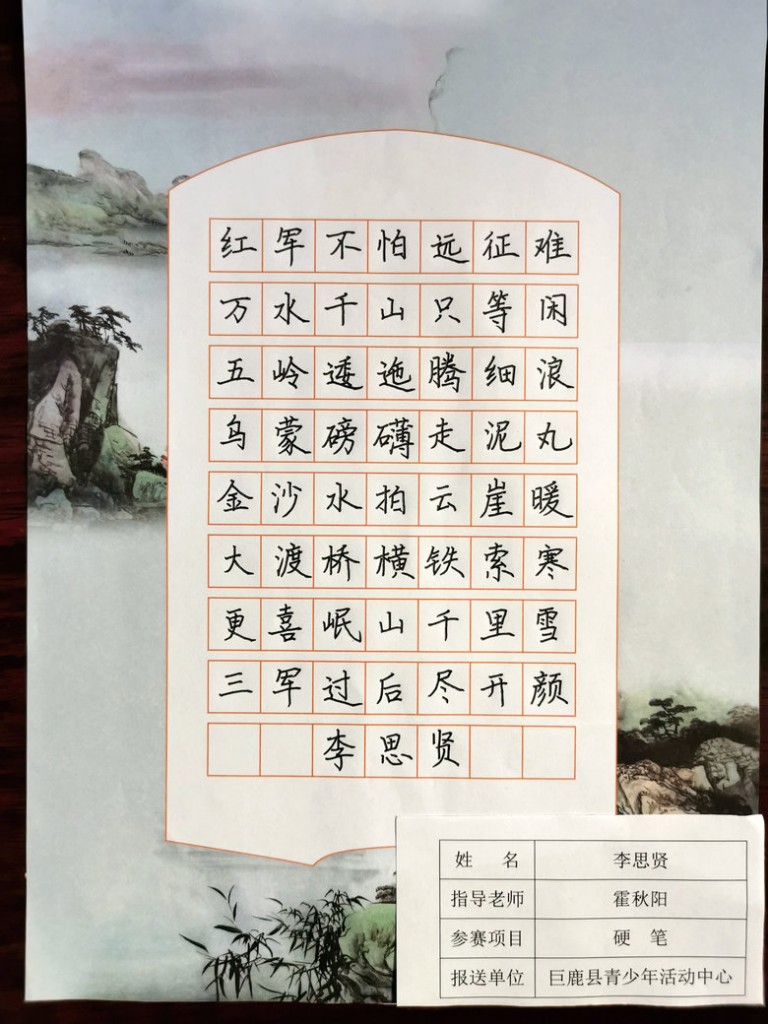 红军不怕远征难
万水千山只等闲
五岭逶迤腾细浪
乌蒙磅礴走泥丸
金沙水拍云崖暖
大渡桥横铁索寒
更喜岷山千里雪
三军过后尽开颜
李思贤
姓 名 李思贤
指导老师 霍秋阳
参赛项目 硬 笔
报送单位 巨鹿县青少年活动中心